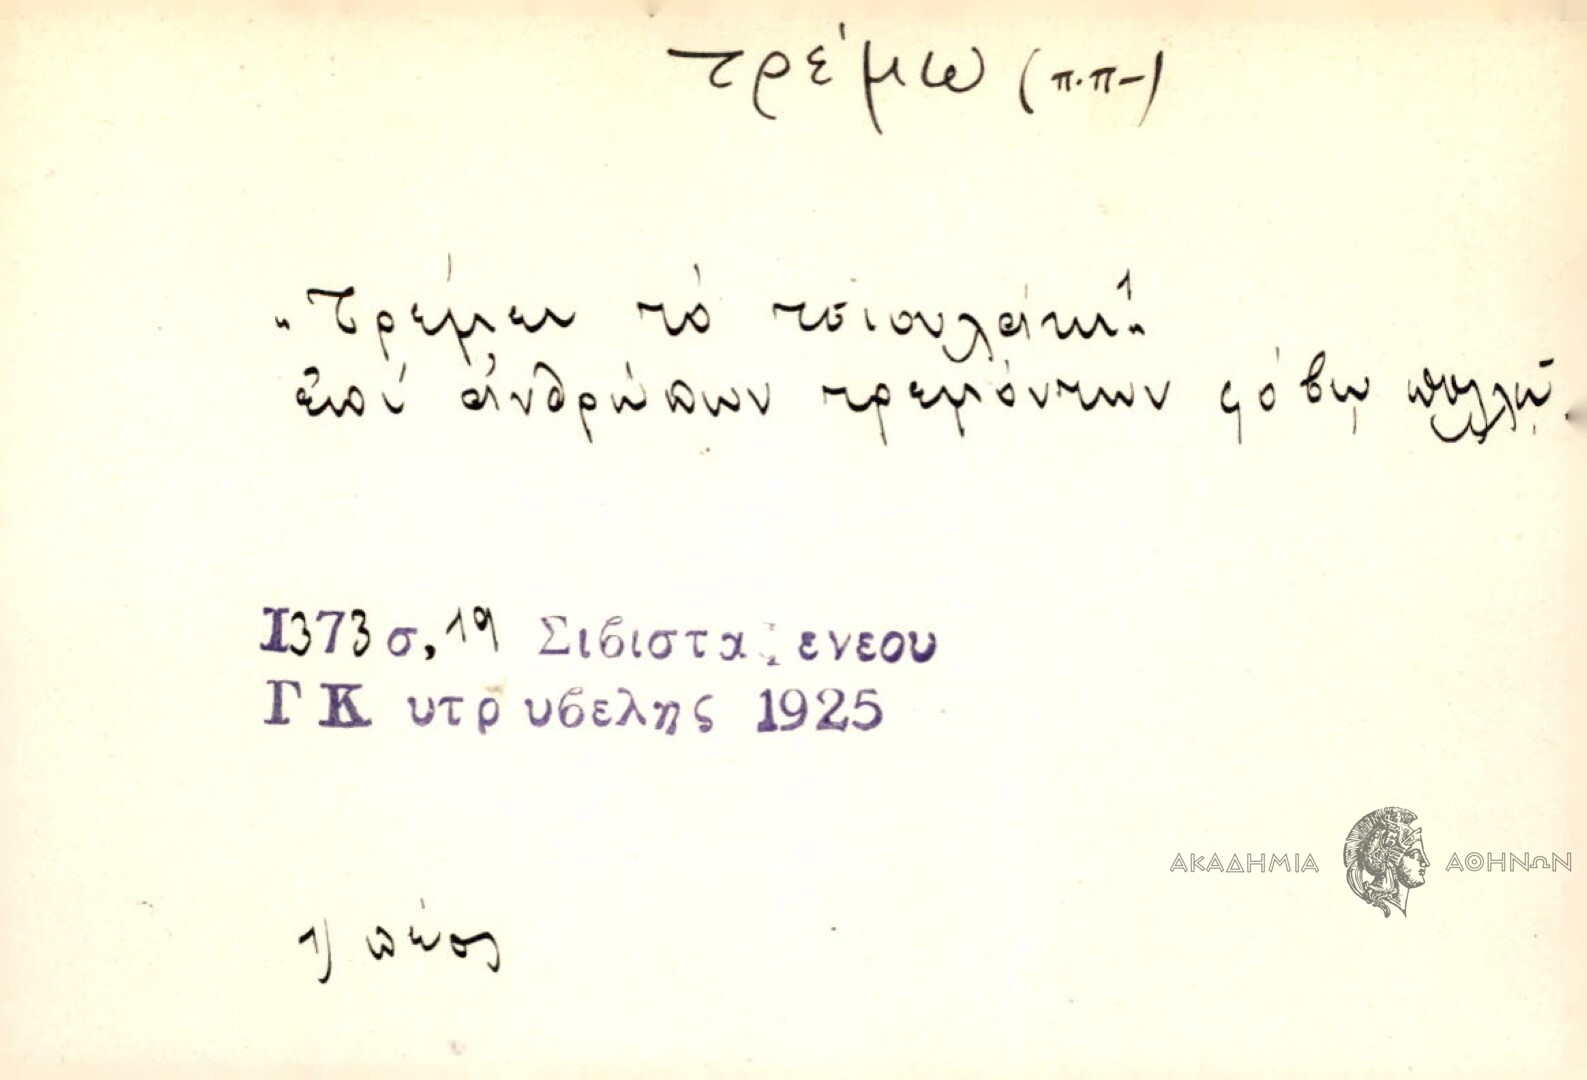 τρέμω (π.π-)
„Τρέμει τὸ τσιουλάκι¹"
ἐπί ἀνθρώπων τρεμόντων φόβῳ πολλῷ.
1373 σ, 19 Σιβιστα ενεου
Γ Κ υτρ υβελης 1925
ΑΚΑΔΗΜΙΑ ΑΘΗΝΩΝ
1) πέος